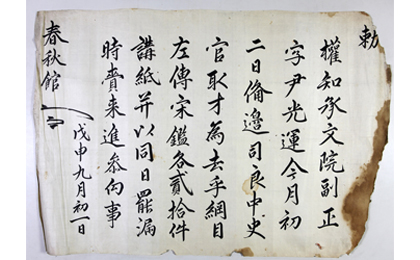 勅
權知承文院副正
字尹光運今月初
二日備邊司良中史
官取才為去乎綱目
左傳宋鑑各貳拾件
講紙并以同日罷漏
時賫来進叅向事
戊申九月初一日
春秋館